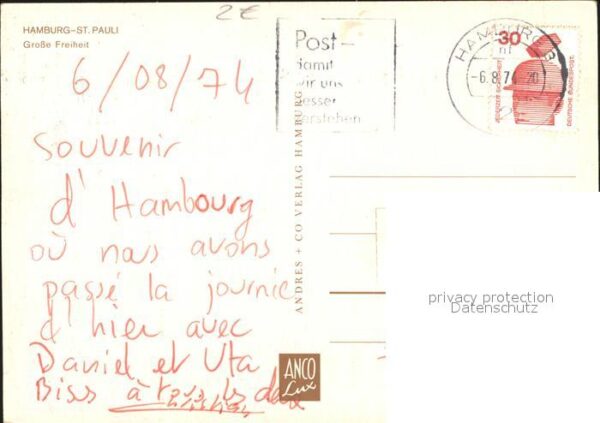 HAMBURG-ST. PAULI
Große Freiheit
2€
6/08/74
Souvenir
d'Hambourg
où nous avons
passé la journie
d'hier avec
Daniel et Uta
Biss à
Post-
damit
wir uns
besser
verstehen
HAMBURG
-6.8.74
30
JEDERZEIT SICHERHEIT
DEUTSCHE BUNDESPOST
ANDRES + CO VERLAG HAMBURG
ANCO
Lux
privacy protection
Datenschutz